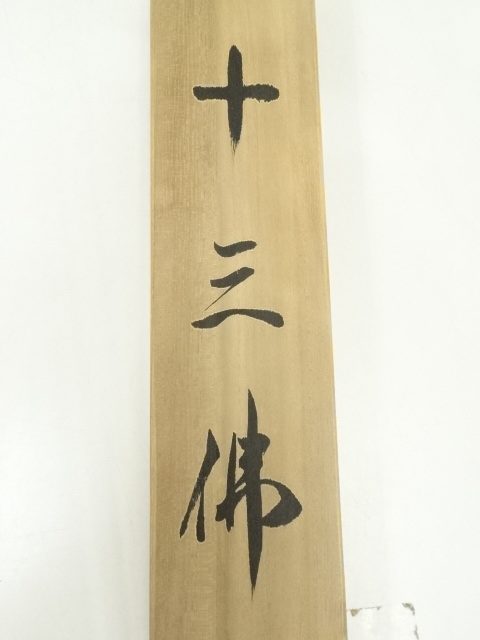 十三佛